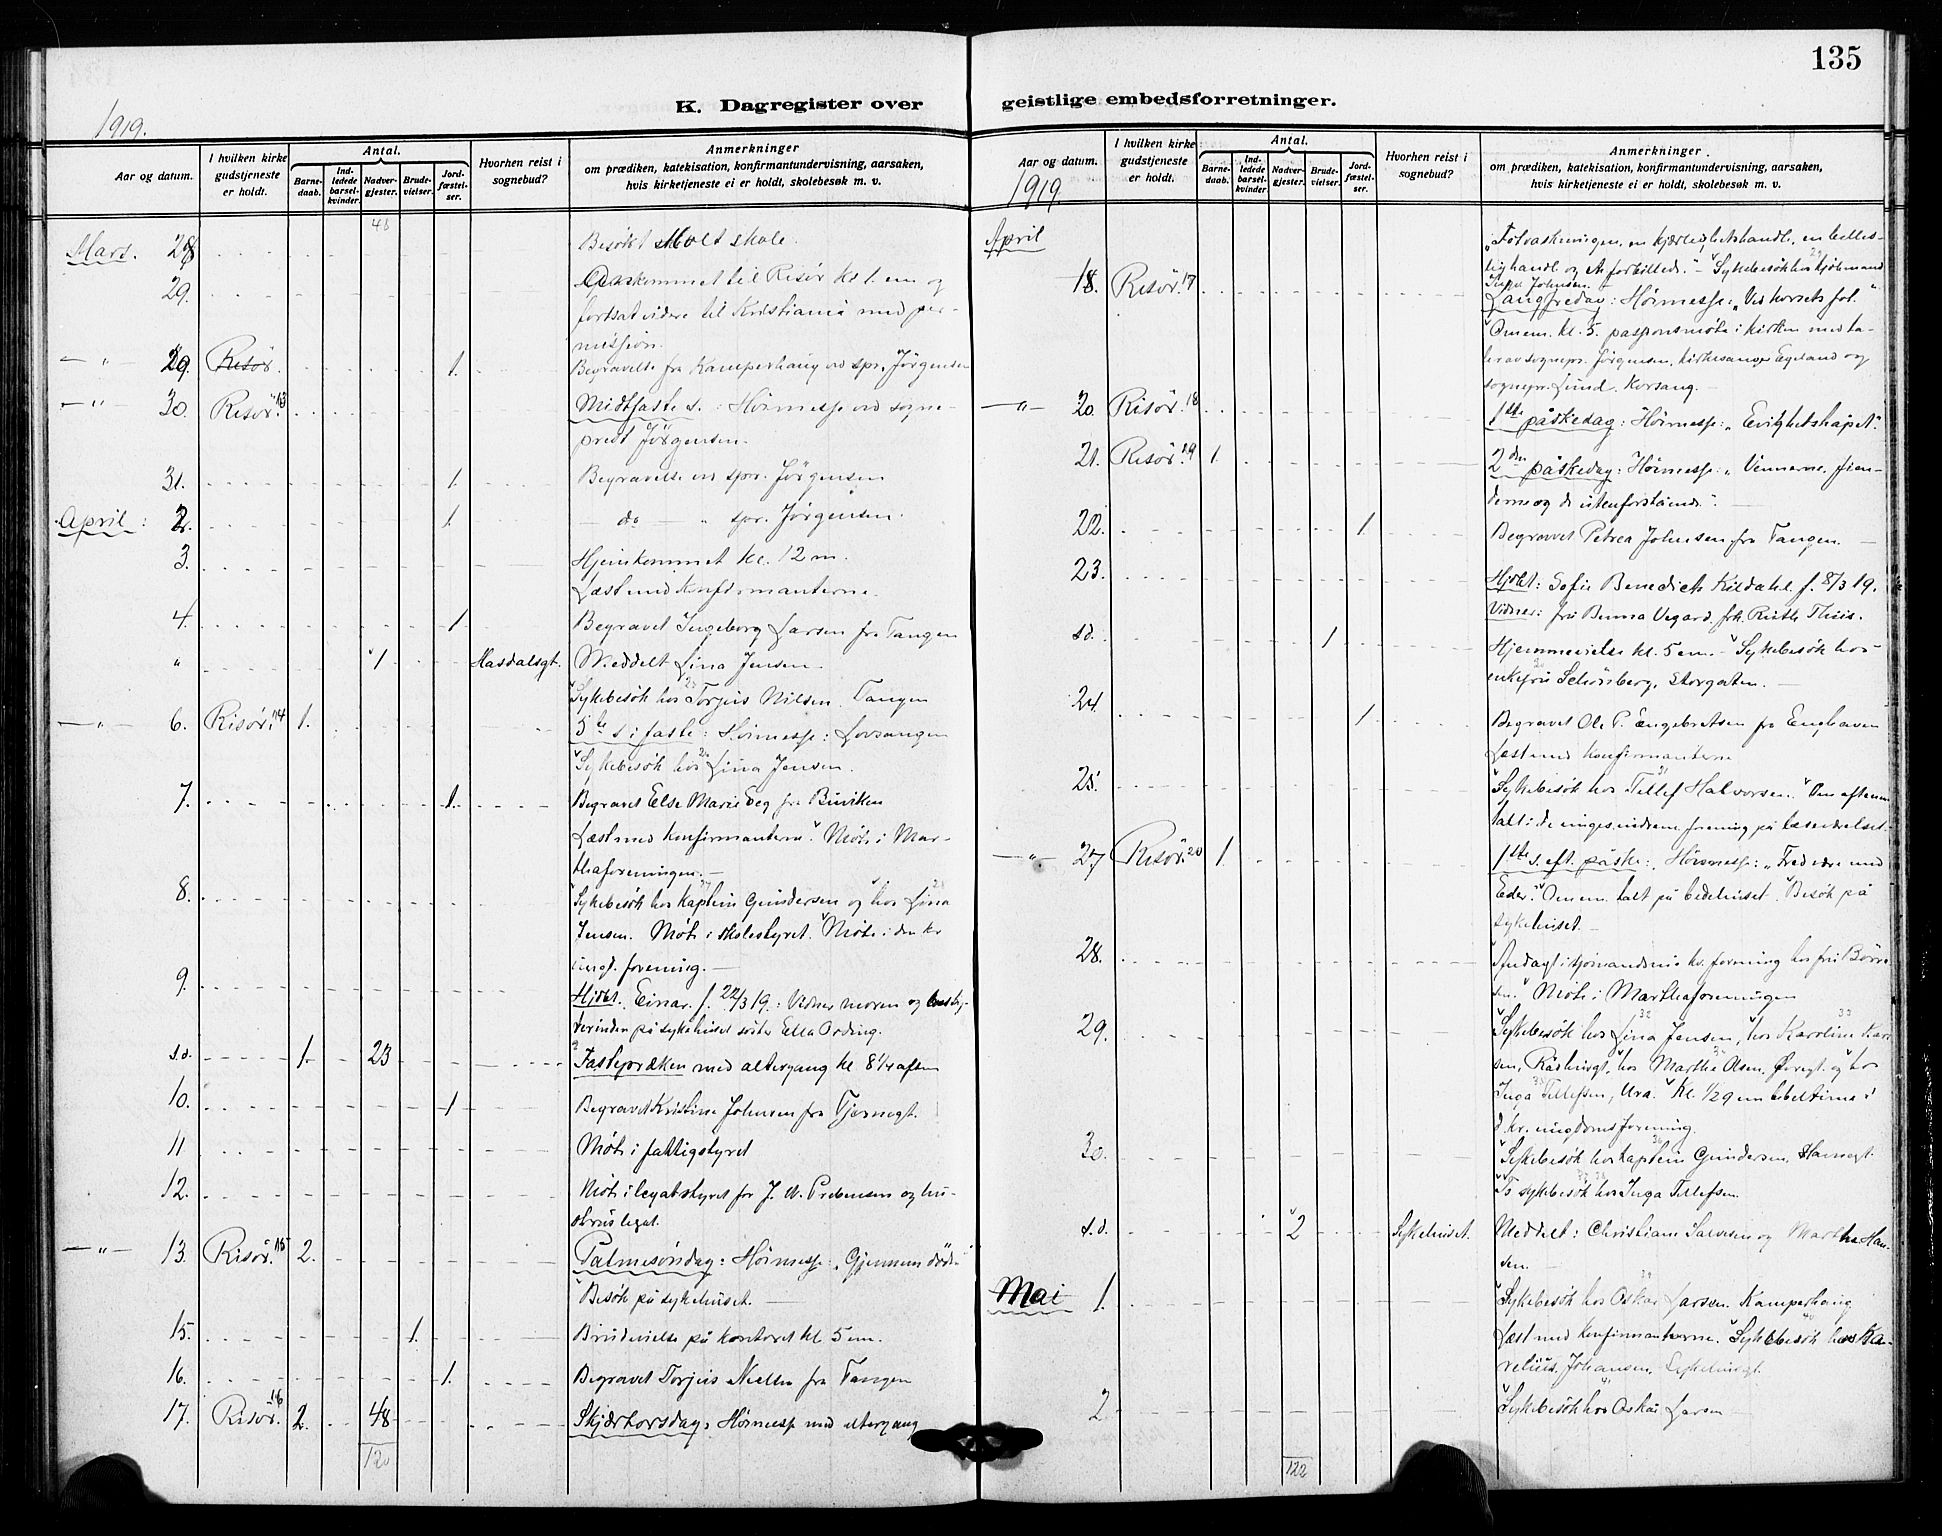 135
K. Dagregister over geistlige embedsforretninger.
1919.
Aar og datum.
I hvilken kirke gudstjeneste er holdt.
Antal.
Barne-daab.
Ind-ledede barsel-kvinder.
Nadver-gjester.
Brude-vielser.
Jord-fæstel-ser.
Hvorhen reist i sognebud?
Anmerkninger
om prædiken, katekisation, konfirmantundervisning, aarsaken,
hvis kirketjeneste ei er holdt, skolebesøk m. v.
48
Mars. 28 Besøkt skole.
29. til Risør kl 1. em og
fortsat videre til Kristiania med per-
mission.
— " — 29. Risør. 1. Begravelse fra Kamperhaug ved spr. Jørgensen
— " — 30. Risør. 13 Midtfaste s. : Høimesse ved sogne-
prest Jørgensen.
31. 1. Begravelse ved spr. Jørgensen
April : 2. 1. — do — " spr. Jørgensen.
3. Hjemkommet kl. 12 m.
Læst med konfirmanterne.
4. 1. Begravet Ingeborg Larsen fra Tangen
" 1 Hasdalsgt. Meddelt Lina Jensen.
Sykebesøk hos Torjus Nilsen. Tangen
— " — 6. Risør. 14 1. 5te s i faste : Høimesse : Lovsangen
Sykebesøk hos Lina Jensen.
7. 1. Begravet Else Marie Eeg fra Buviken
Læst med konfirmanterne. Møte i Mar-
thaforeningen. —
8. Sykebesøk hos kaptein Gundersen og hos Lina
Jensen. Møte i skolestyret. Møte i den kr
ungd. forening. —
9. Hjdbt. Einar. f. 22/3 19. : Vidner moren og
på sykehuset søster Ella Ording.
s.d. 1. 23 Fastepræken med altergang kl 8 1/4 aften
10. 1 Begravet Kristine Johnsen fra Tjernegt.
11 Møte i fattigstyret
12. Møte i legatstyret for J. W. Prebensen og hu-
strus legat.
— " — 13. Risør. 15 2. Palmesøndag : Høimesse : „Gjennem død"
Besøk på sykehuset. —
15. 1. Brudevielse på kontoret kl. 5 em.
16. 1. Begravet Torjus Nielsen fra Tangen
17. Risør. 16 2. 48 Skjærtorsdag : Høimesse med altergang
120
Aar og datum.
1919.
I hvilken kirke gudstjeneste er holdt.
Antal.
Barne-daab.
Ind-ledede barsel-kvinder.
Nadver-gjester.
Brude-vielser.
Jord-fæstel-ser.
Hvorhen reist i sognebud?
Anmerkninger.
om prædiken, katekisation, konfirmantundervisning, aarsaken,
hvis kirketjeneste ei er holdt, skolebesøk m. v.
April „Fotvaskningen, en kjærlighetshandl., en billed-
lighandl og et forbillede." – Sykebesøk hos kjøbmand
Johnsen. –
18. Risør. 17 Langfredag : Høimesse : „Ved korsets fot."
Omem. kl. 5. pasjonsmøte i kirken med ta-
ler av sognepr. Jørgensen, kirkesanger Egeland og
sognepr. Lund. Korsang. –
— " — 20. Risør. 18 1ste påskedag : Høimesse : „Evighetshåpet".
21. Risør. 19 1. 2den påskedag : Høimesse : „Vennerne, fien-
derne og de utenforstående". —
22. 1 Begravet Petrea Johnsen fra Tangen. —
23. Hjdbt : Sofie Benedicte Kildahl f. 8/3 19.
Vidner : fru Benna Vegard, frk. Ruth Thiis.
s.d. 1 Hjemmevielse kl. 5 em. – Sykebesøk hos
enkefru Schönberg, Storgaten. —
24. 1. Begravet Ole P. Engebretsen fra Enghaven
Læst med konfirmanterne
25. Sykebesøk hos Tellef Halvorsen. Om aftenen
talt i de unges indremforening på læseværelset.
— " — 27. Risør. 20 1. 1ste s. eft. påske : Høimesse : „Fred være med
Eder." Omem. talt på bedehuset. Besøk på
sykehuset. —
28. Andagt i sjømandsmis kv. forening hos fru
Møte i Marthaforeningen
29. Sykebesøk hos Lina Jensen, hos Karoline
hos Marthe Olsen, Øvregt. og hos
Inga Tellefsen, Ura. Kl. 1/2 9 em bibeltime i
d kr. ungdomsforening.
30. Sykebesøk hos kaptein Gundersen, Havnegt.
To sykebesøk hos Inga Tellefsen.
s.d. 2 Sykehuset. Meddelt : Christiane Salvesen og Marthe Han-
sen. —
Mai 1. Sykebesøk hos Oskar Larsen. Kamperhaug
Læst med konfirmanterne. Sykebesøk hos Ka-
relius Johansen, Sykehusgt.
2. Sykebesøk hos Oskar Larsen —
122